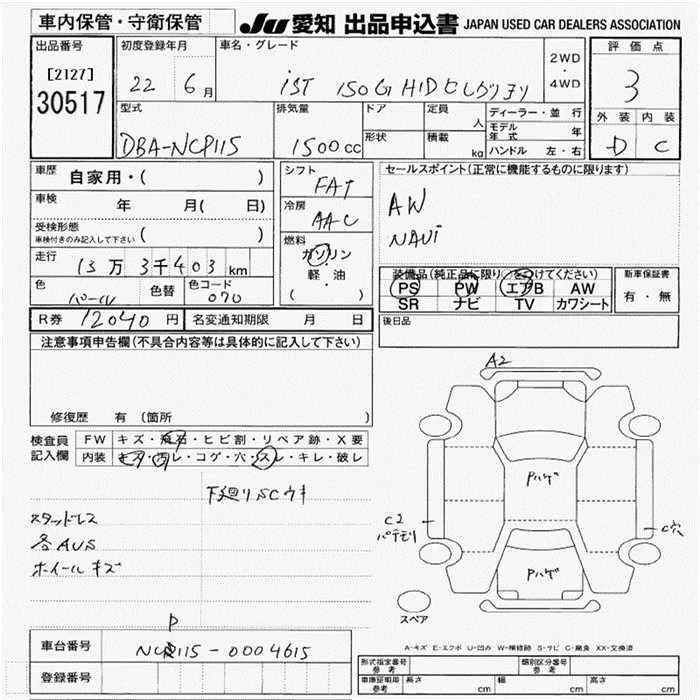 車内保管・守衛保管
JU 愛知 出品申込書 JAPAN USED CAR DEALERS ASSOCIATION
出品番号
[2127]
30517
初度登録年月
22 6月
車名・グレード
iST 150G HID
2WD
・
4WD
評価点
3
外装 内装
D C
型式
DBA-NCP115
排気量
1500cc
ドア
形状
定員 人
積載 kg
ディーラー・並行
モデル年式 年
ハンドル 左・右
車歴 自家用・( )
車検 年 月( 日)
受検形態
車検付きのみ記入して下さい ( )
走行 13万3千403km
色 パール
色替
色コード 070
シフト FAT
冷房 AAC
燃料
ガソリン
・
軽・油
( )
セールスポイント(正常に機能するものに限ります)
AW
NAVi
装備品(純正品に限り○をつけてください)
PS PW エアB AW
SR ナビ TV カワシート
新車保証書
有・無
R券 12040円
名変通知期限 月 日
後日品
注意事項申告欄(不具合内容等は具体的に記入して下さい)
修復歴 有 (箇所 )
検査員
記入欄
FW キズ・飛石・ヒビ割・リペア跡・X要
内装 キズ・汚レ・コゲ・穴・スレ・キレ・破レ
下廻りSCウキ
スタッドレス
各AUS
ホイールキズ
A2
Pハゲ
Pハゲ
C2
C穴
スペア
A-キズ E-エクボ U-凹み W-補修跡 S-サビ C-腐食 XX-交換済
車台番号
P
NCP115-0004615
登録番号
形式指定番号
参考
類別区分番号
参考
車庫証明用
参考
長さ cm
幅 cm
高さ cm